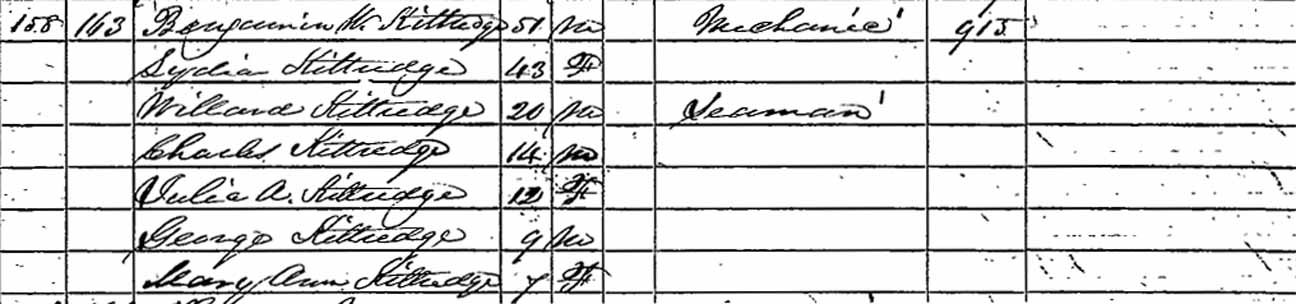 158 163 Benjamin W. Kittredge 51 M Mechanic 915
Lydia Kittredge 43 F
Willard Kittredge 20 M Seaman
Charles Kittredge 14 M
Julia A. Kittredge 12 F
George Kittredge 9 M
Mary Ann Kittredge 7 F